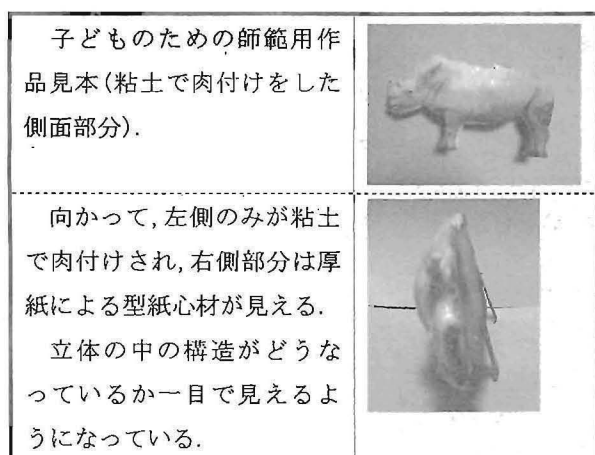 子どものための師範用作
品見本(粘土で肉付けをした
側面部分).
向かって,左側のみが粘土
で肉付けされ,右側部分は厚
紙による型紙心材が見える.
立体の中の構造がどうな
っているか一目で見えるよ
うになっている.